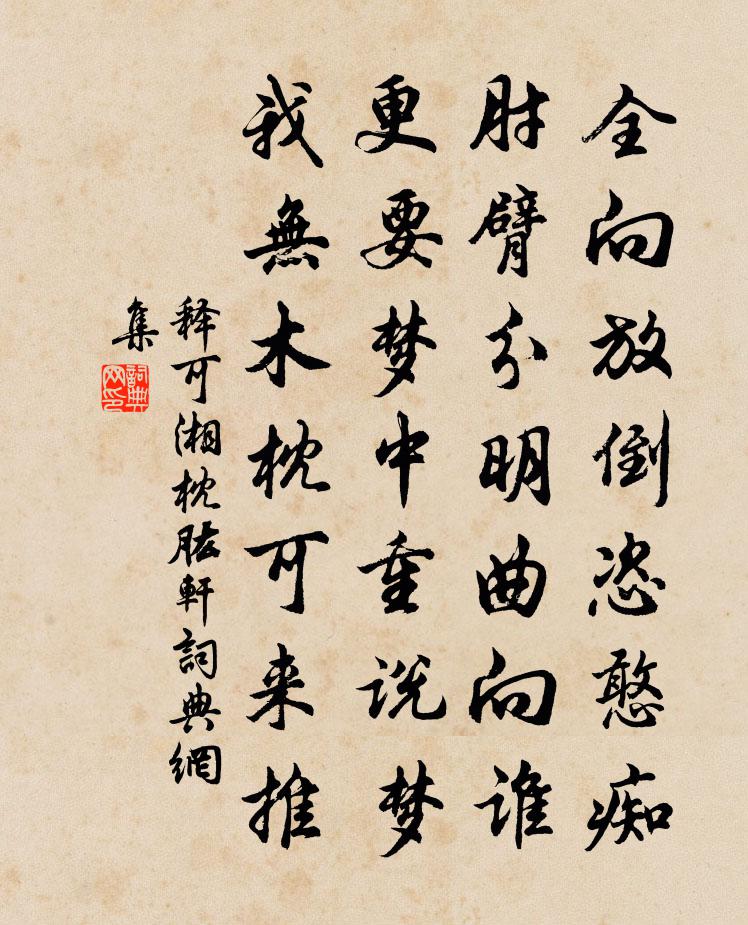 全向放倒恣憨痴
肘臂分明曲向谁
更要梦中重说梦
我無木枕可来推
释可湘枕肱軒詞典網
集
詞典网印